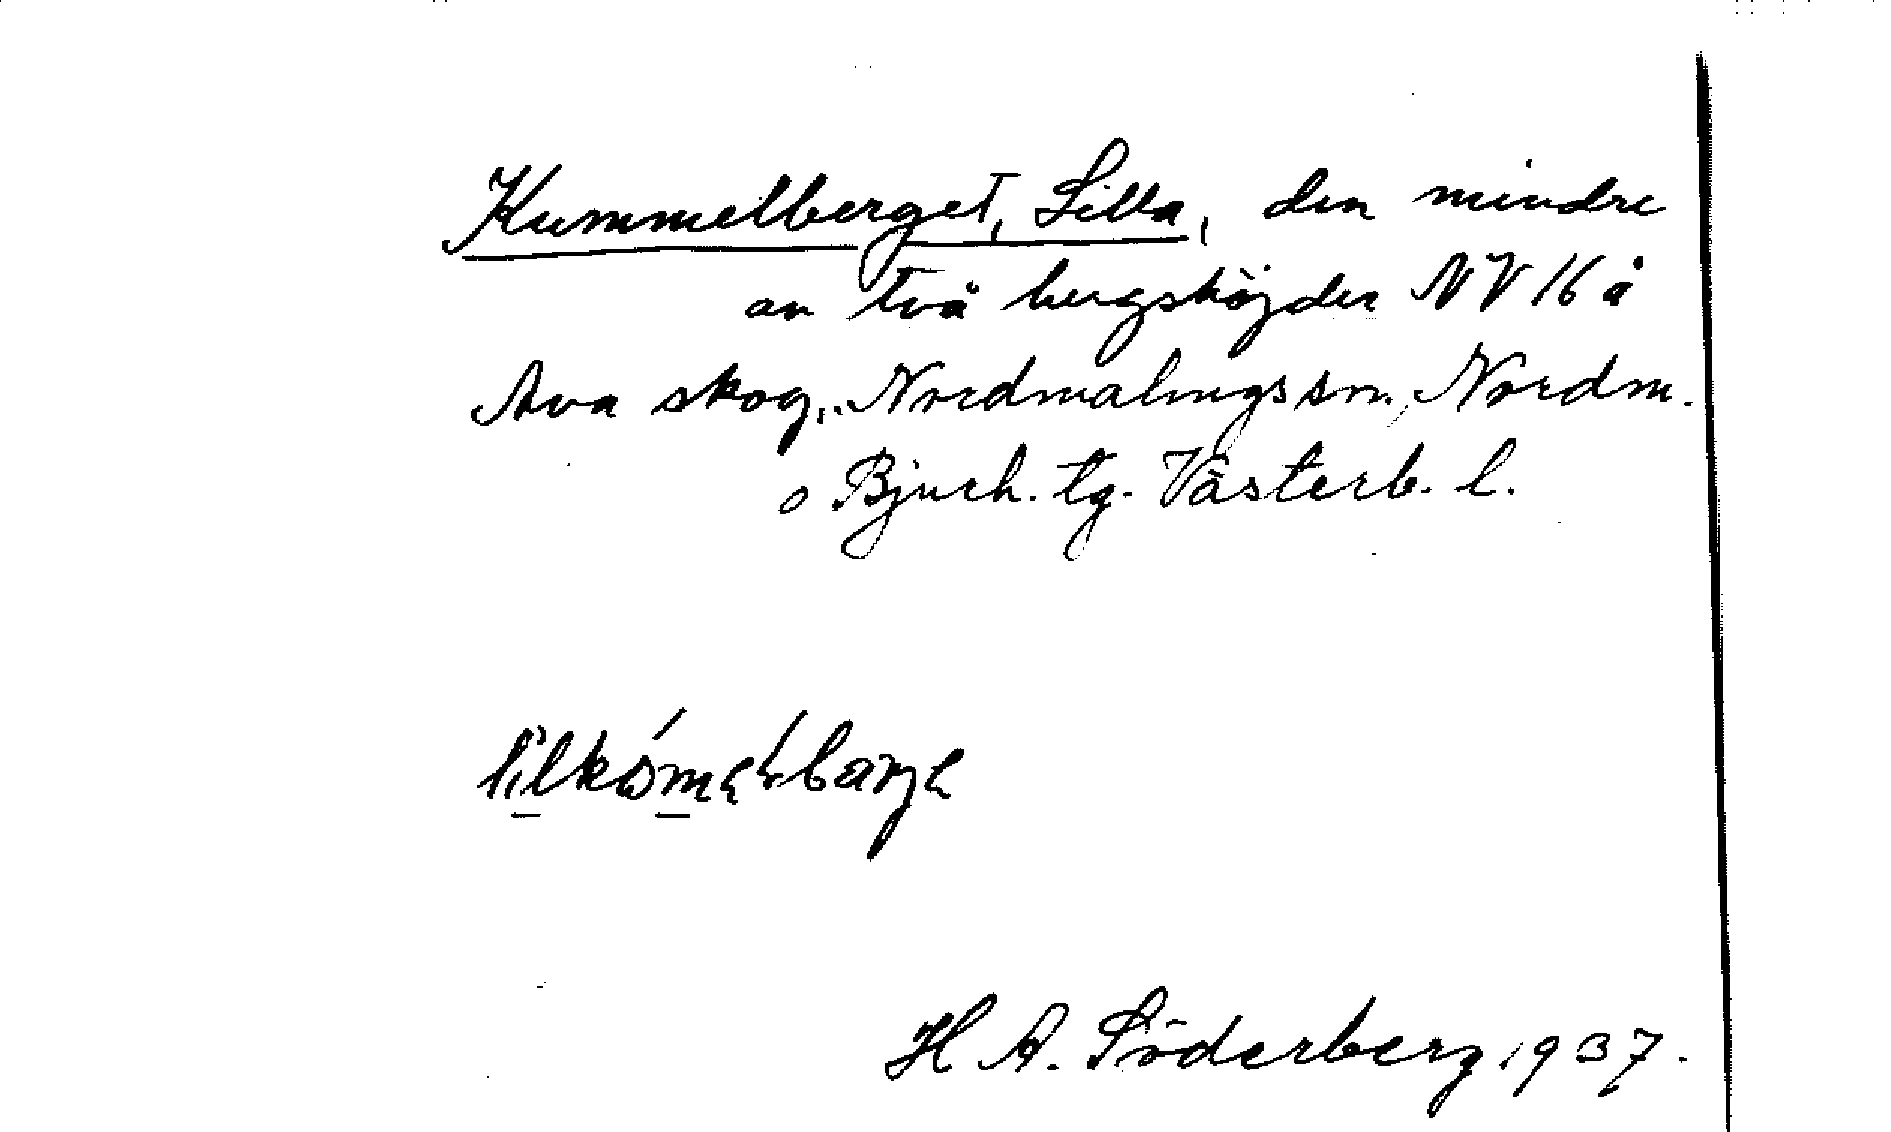 Kummelberget, Lilla, den mindre
av två bergshöjder NV 16 å
Ava skog, Nordmalings sn, Nordm.
o Bjurh. tg. Västerb. l.
H A. Söderberg 1937.